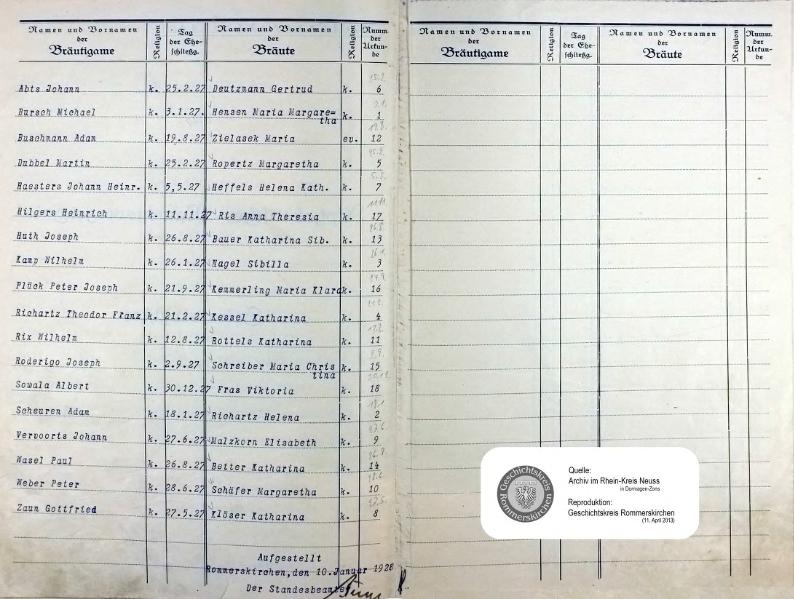 Namen und Vornamen der Bräutigame Religion Tag der Ehe- schließg. Namen und Vornamen der Bräute Religion Numm. der Urkun- de
Abts Johann k. 25.2.27 Deutzmann Gertrud k. 6
Bursch Michael k. 3.1.27. Hensen Maria Margare=
tha k. 1
Buschmann Adam k. 19.8.27 Zielasek Maria ev. 12
Dubbel Martin k. 25.2.27 Ropertz Margaretha k. 5
Haesters Johann Heinr. k. 5,5.27 Heffels Helena Kath. k. 7
Hilgers Heinrich k. 11.11.27 Ris Anna Theresia k. 17
Huth Joseph k. 26.8.27 Bauer Katharina Sib. k. 13
Kamp Wilhelm k. 26.1.27 Nagel Sibilla k. 3
Plück Peter Joseph k. 21.9.27 Kemmerling Maria Klara k. 16
Richartz Theodor Franz k. 21.2.27 Kessel Katharina k. 4
Rix Wilhelm k. 12.8.27 Rottels Katharina k. 11
Roderigo Joseph k. 2.9.27 Schreiber Maria Chris
tina k. 15
Sowala Albert k. 30.12.27 Fras Viktoria k. 18
Scheuren Adam k. 18.1.27 Richartz Helena k. 2
Vervoorts Johann k. 27.6.27 Malzkorn Elisabeth k. 9
Wasel Paul k. 26.8.27 Better Katharina k. 14
Weber Peter k. 28.6.27 Schäfer Margaretha k. 10
Zaun Gottfried k. 27.5.27 Klöser Katharina k. 8
Aufgestellt
Rommerskirchen, den 10. Januar 1928
Der Standesbeamte
Namen und Vornamen der Bräutigame Religion Tag der Ehe- schließg. Namen und Vornamen der Bräute Religion Numm. der Urkun- de
Geschichtskreis
Rommerskirchen
Quelle:
Archiv im Rhein-Kreis Neuss
in Dormagen-Zons
Reproduktion:
Geschichtskreis Rommerskirchen
(11. April 2013)